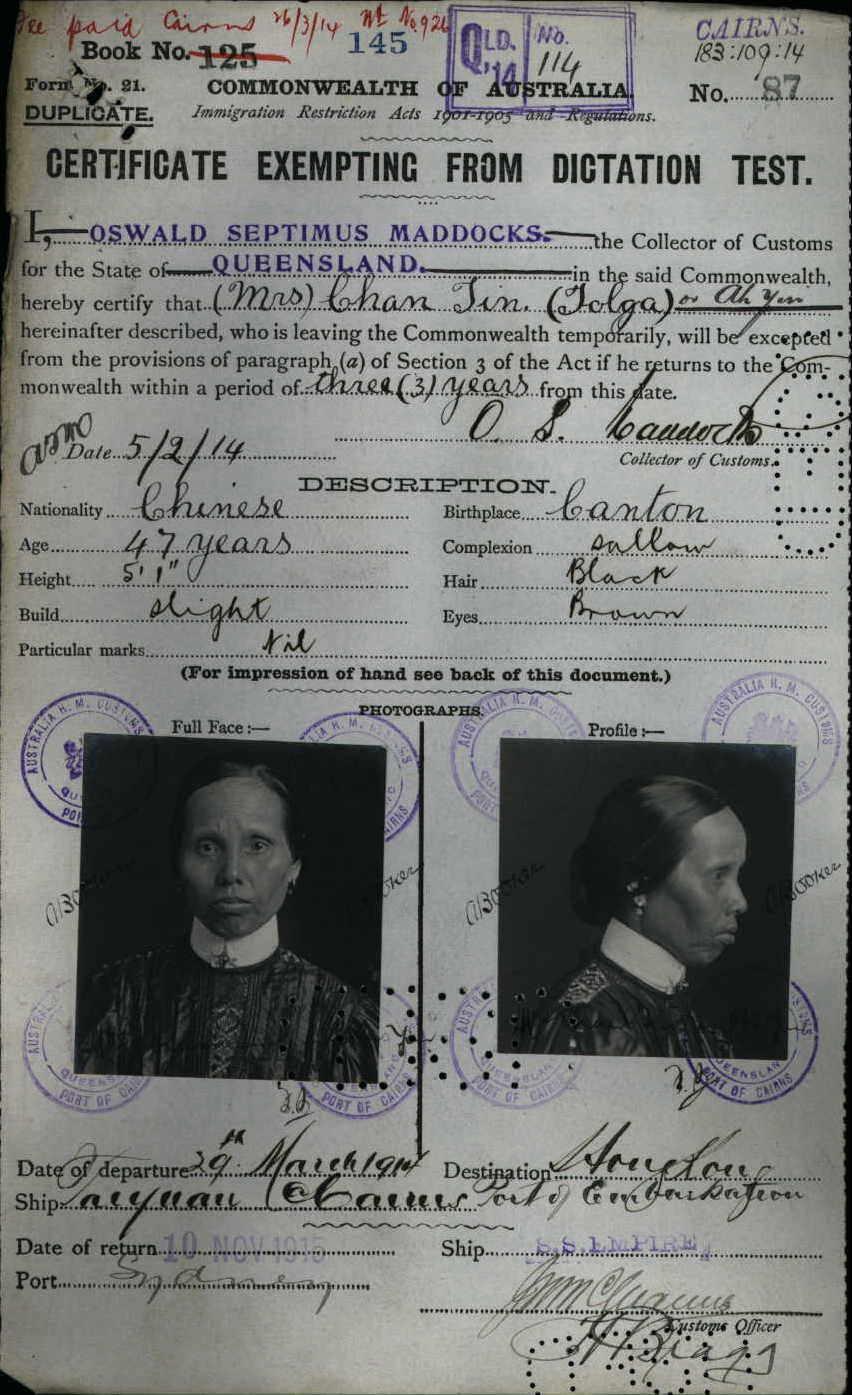 Fee paid Cairns 26/3/14 No. 926
Book No. 125 145
QLD. '14 No. 114
CAIRNS.
183:109:14
Form No. 21. COMMONWEALTH OF AUSTRALIA. No. 87
DUPLICATE. Immigration Restriction Acts 1901-1905 and Regulations.
CERTIFICATE EXEMPTING FROM DICTATION TEST.
I, OSWALD SEPTIMUS MADDOCKS. the Collector of Customs
for the State of QUEENSLAND. in the said Commonwealth,
hereby certify that (Mrs) Chan Tin. (Tolga) or Ah Yen
hereinafter described, who is leaving the Commonwealth temporarily, will be excepted
from the provisions of paragraph (a) of Section 3 of the Act if he returns to the Com-
monwealth within a period of three (3) years from this date.
O. S. Maddocks
Date 5/2/14
Collector of Customs.
DESCRIPTION.
Nationality Chinese Birthplace Canton
Age 47 years Complexion sallow
Height 5' 1" Hair Black
Build slight Eyes Brown
Particular marks Nil
(For impression of hand see back of this document.)
PHOTOGRAPHS.
Full Face :— Profile :—
AUSTRALIA H. M. CUSTOMS QUEENSLAND PORT OF CAIRNS
A Booker
A Booker
Date of departure 29th March 1914 Destination Hong Kong
Ship Taiyuan (Cairns Port of Embarkation
Date of return 10 NOV 1915 Ship S.S. EMPIRE
Port Sydney
Customs Officer